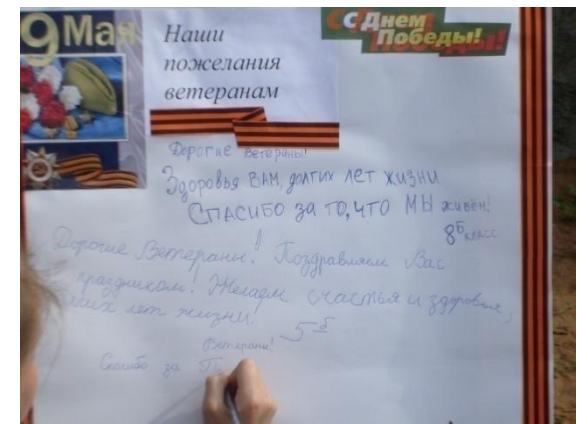 9 Мая
Наши
пожелания
ветеранам
С Днем
Победы!
Дорогие ветераны!
Здоровья ВАМ, долгих лет жизни
Спасибо за то, что мы живём!
8б класс
Дорогие Ветераны! Поздравляем Вас
праздником! Желаем счастья и здоровья,
лет жизни.
5б
Ветераны!
Спасибо за